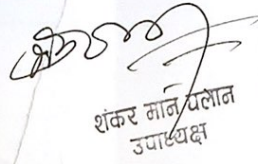 शंकर मान पलान
उपाध्यक्ष